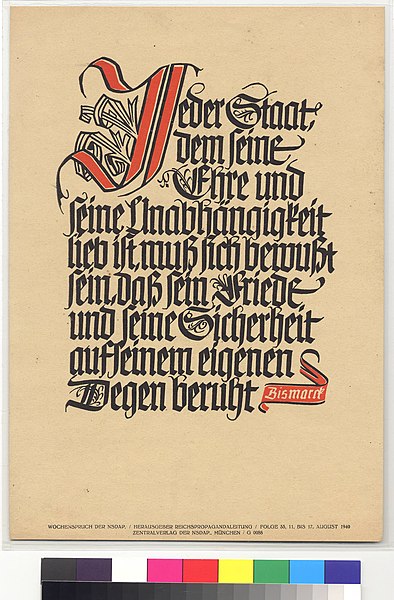 Jeder Staat,
dem seine
Ehre und
seine Unabhängigkeit
lieb ist, muß sich bewußt
sein, daß sein Friede
und seine Sicherheit
auf seinem eigenen
Degen beruht
Bismarck
WOCHENSPRUCH DER NSDAP. / HERAUSGEBER REICHSPROPAGANDALEITUNG / FOLGE 33, 11. BIS 17. AUGUST 1940
ZENTRALVERLAG DER NSDAP., MÜNCHEN / G 0058